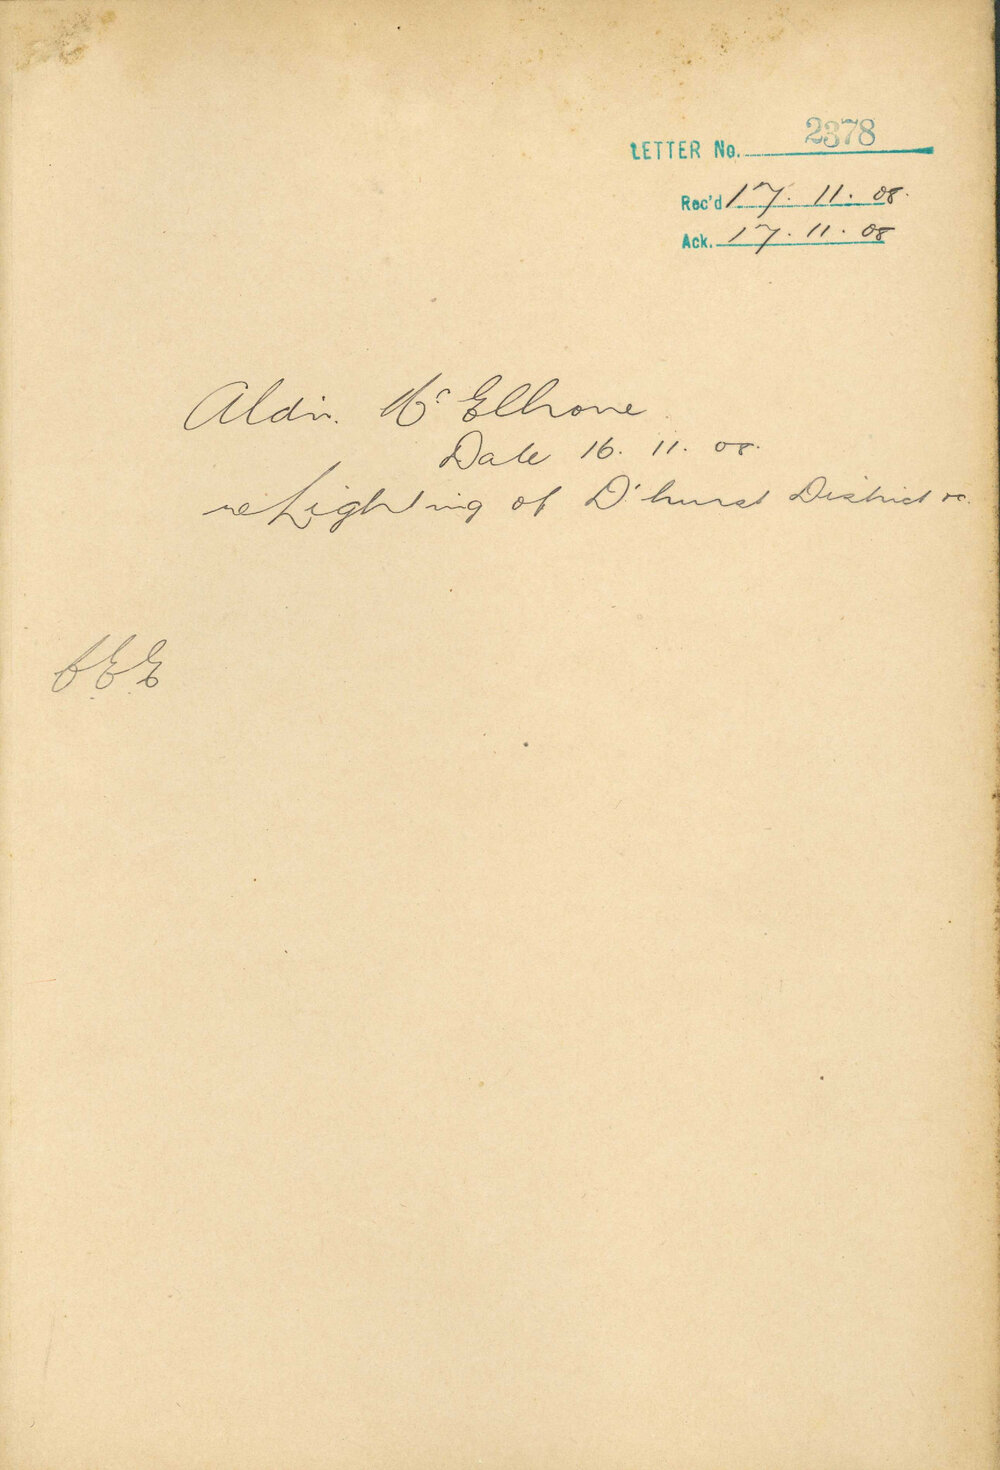 LETTER No. 2378
Rec'd 17. 11. 08.
Ack. 17. 11. 08
Aldn. McElhone
Date 16. 11. 08.
re Lighting of D'hurst District